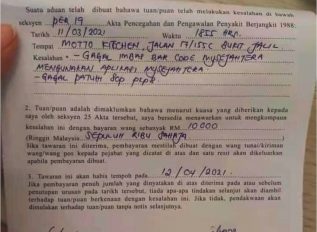 Suatu aduan telah dibuat bahawa tuan/puan telah melakukan kesalahan di bawah
seksyen PER 19 Akta Pencegahan dan Pengawalan Penyakit Berjangkit 1988:
Tarikh 11/03/2021 Waktu 1855 HRS.
Tempat MOTTO KITCHEN, JALAN 17/155C BUKIT JALIL
Kesalahan * - GAGAL IMBAS BAR CODE MYSEJAHTERA
MENGGUNAKAN APLIKASI MYSEJAHTERA.
- GAGAL PATUH SOP PKPB
2. Tuan/puan adalah dimaklumkan bahawa menurut kuasa yang diberikan kepada
saya oleh seksyen 25 Akta tersebut, saya bersedia menawarkan untuk mengkompaun
kesalahan ini dengan bayaran wang sebanyak RM 10 000
(Ringgi Malaysia SEPULUH RIBU SAHAJA
Jika tawaran ini diterima, pembayaran mestilah dibuat dengan wang tunai/kiriman
wang/wang pos kepada pejabat yang dicatat di atas dan satu resit akan dikeluarkan
apabila pembayaran dibuat.
3. Tawaran ini akan habis tempoh pada 12/04/2021.
Jika pembayaran penuh jumlah yang dinyatakan di atas diterima pada atau sebelum
penutupan urusan pada tarikh tersebut, tiada apa-apa tindakan selanjut akan diambil
terhadap tuan/puan berkenaan dengan kesalahan ini. Jika tidak, pendakwaan akan
dimulakan terhadap tuan/puan tanpa notis selanjutnya.